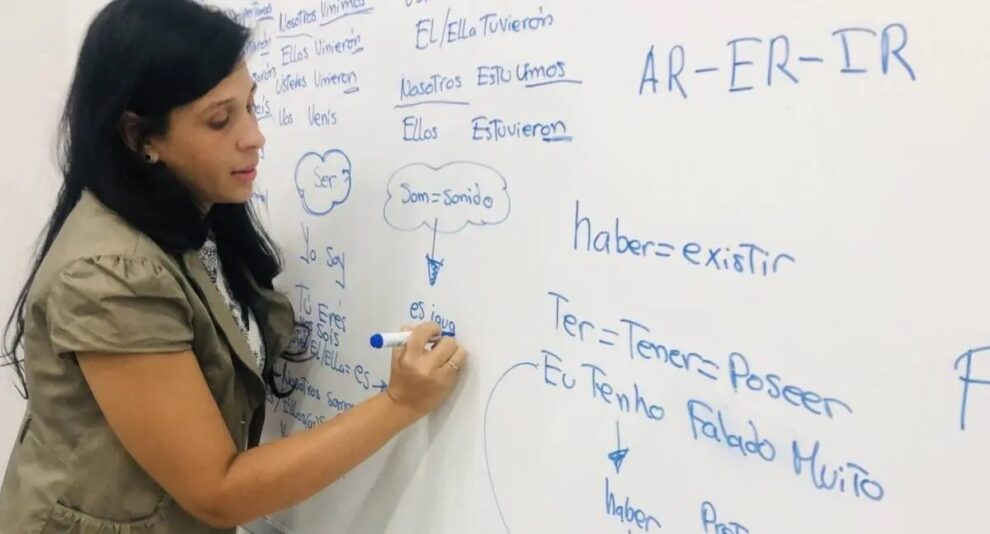 Nosotros Vinimos
Ellos Vinierón
Ustedes Vinieron
Vos Venís
El/Ella Tuvierón
Nosotros Estuvimos
Ellos Estuvieron
Ser
Yo Soy
Tú Erés
Vos Sois
El/Ella = es
Nosotros Somos
Som = Sonido
es igua
AR-ER-IR
haber = existir
Ter = Tener = Poseer
Eu Tenho Falado Muito
haber